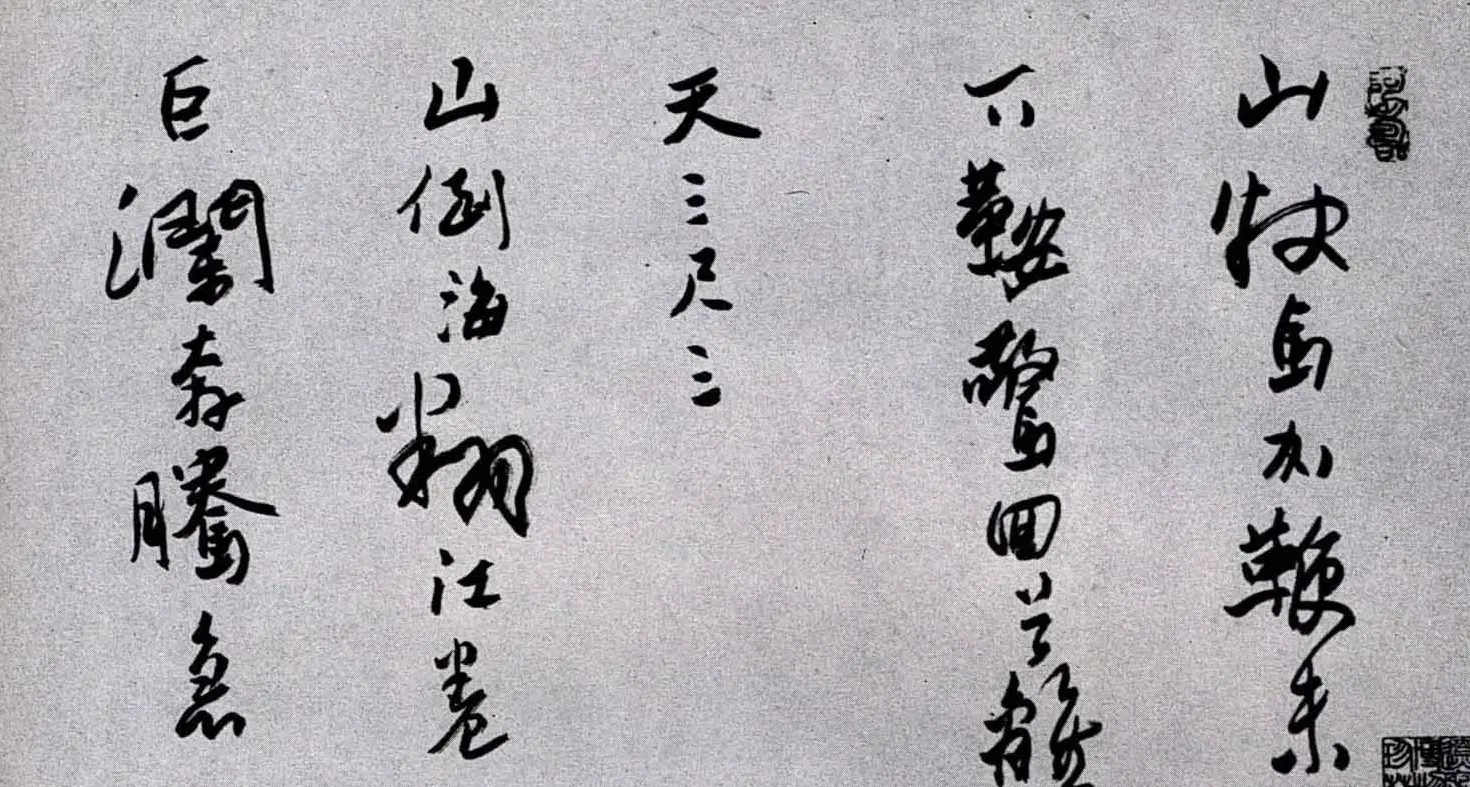 山快馬加鞭未
下鞍驚回首離
天三尺三
山倒海翻江卷
巨瀾奔騰急